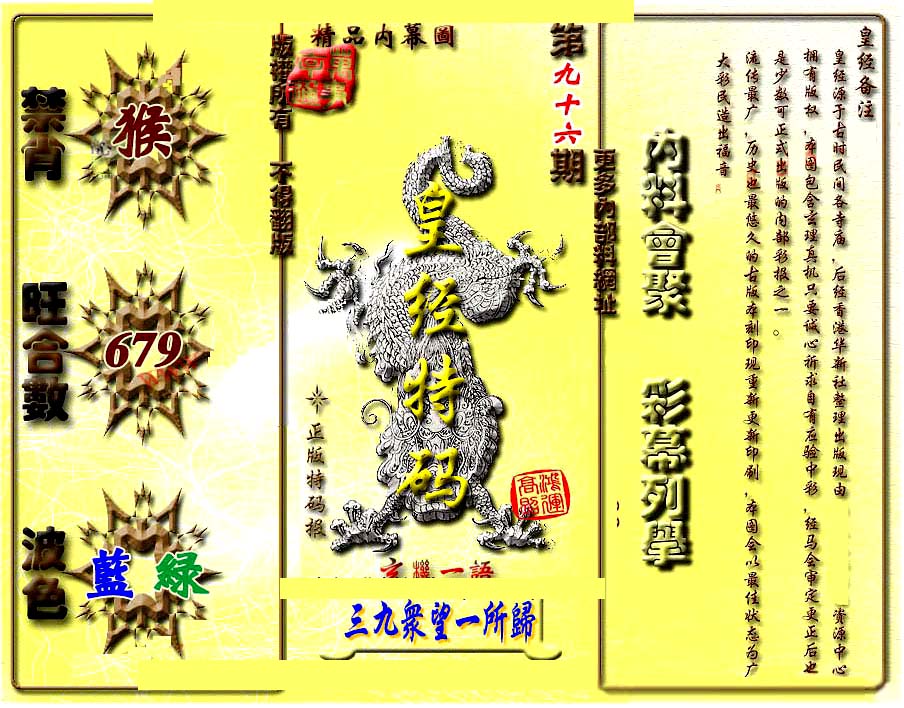 禁肖
猴
旺合數
679
波色
藍 綠
版權所有 不得翻版
精品内幕圖
第九十六期
皇经特码
正版特码报
鴻運高照
玄機一語
三九衆望一所歸
更多内部料網址
内料會聚
彩幕列舉
皇经备注
皇经源于古时民间各寺庙，后经香港华新社整理出版现由
资源中心
拥有版权，本图包含玄理真机只要诚心祈求自有应验中彩，经马会审定更正后也
是少数可正式出版的内部彩报之一。
流传最广，历史也最悠久的古版本刻印现重新更新印刷，本图会以最佳状态为广
大彩民造出福音